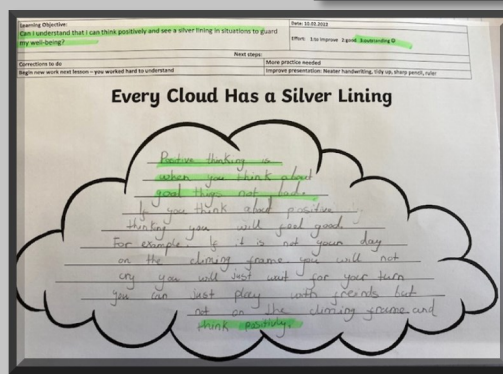 Learning Objective:
Can I understand that I can think positively and see a silver lining in situations to guard
my well-being?
Date: 10.02.2023
Effort: 1.to improve 2.good 3.outstanding ☺
Next steps:
Corrections to do
More practice needed
Begin new work next lesson – you worked hard to understand
Improve presentation: Neater handwriting, tidy up, sharp pencil, ruler
Every Cloud Has a Silver Lining
Positive thinking is
when you think about
good thigs not bad.
If you think about positive
thinking you will feel good.
For example If it is not your day
on the climing frame you will not
cry you will just wait for your turn
you can just play with freinds but
not on the climing frame and
think positivly.